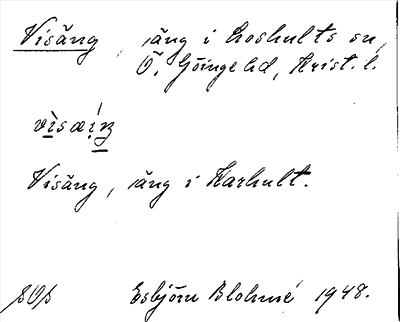 Visäng, äng i Loshults sn,
Ö. Göinge hd, Krist. l.
Visäng, äng i Harhult.
Esbjörn Blohmé 1948.